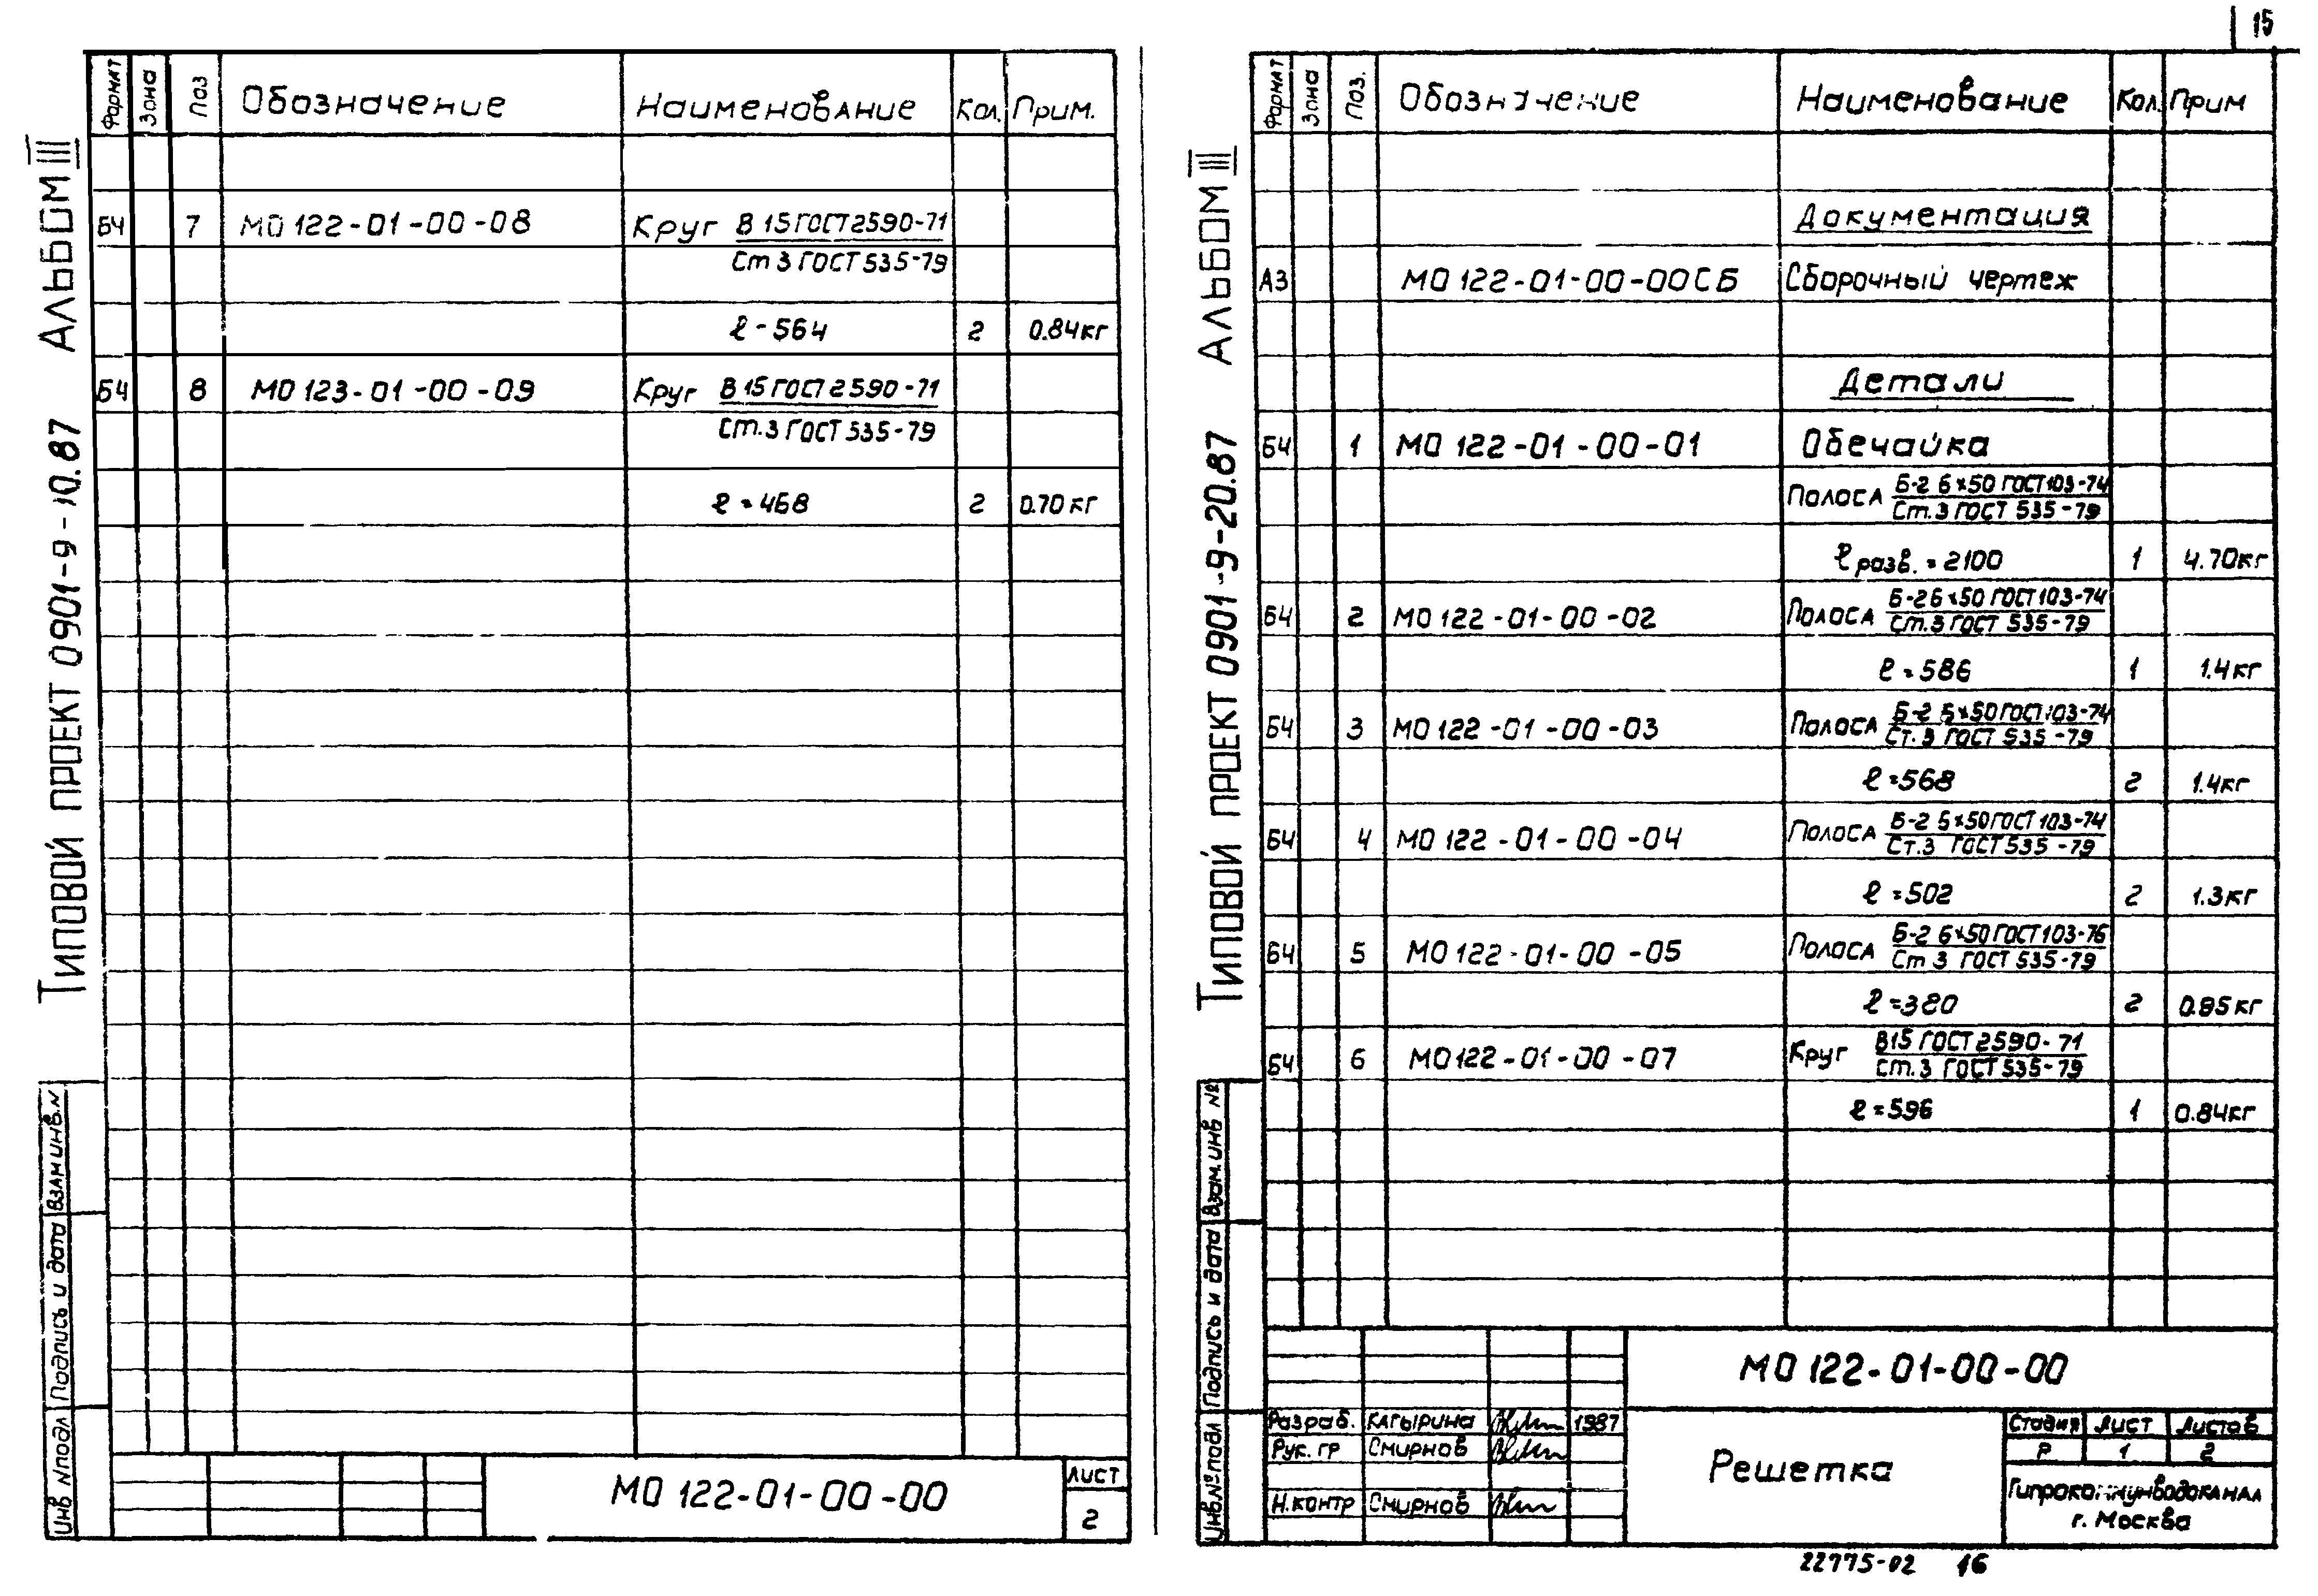 15
ТИПОВОЙ ПРОЕКТ 0901-9-10.87 АЛЬБОМ III
Формат Зона Поз Обозначение Наименование Кол. Прим.
БЧ 7 МО 122-01-00-08 Круг В 15 ГОСТ 2590-71
Ст 3 ГОСТ 535-79
ℓ-564 2 0.84кг
БЧ 8 МО 123-01-00-09 Круг В 15 ГОСТ 2590-71
Ст.3 ГОСТ 535-79
ℓ=468 2 0.70 кг
Инв №подл Подпись и дата Взам инв.№
МО 122-01-00-00
Лист
2
ТИПОВОЙ ПРОЕКТ 0901-9-20.87 АЛЬБОМ III
Формат Зона Поз. Обозначение Наименование Кол. Прим
Документация
А3 МО 122-01-00-00СБ Сборочный чертеж
Детали
БЧ 1 МО 122-01-00-01 Обечайка
Полоса Б-2 6×50 ГОСТ 103-74
Ст.3 ГОСТ 535-79
ℓ разв. = 2100 1 4.70кг
БЧ 2 МО 122-01-00-02 Полоса Б-2 6×50 ГОСТ 103-74
Ст.3 ГОСТ 535-79
ℓ=586 1 1.4кг
БЧ 3 МО 122-01-00-03 Полоса Б-2 5×50 ГОСТ 103-74
Ст.3 ГОСТ 535-79
ℓ=568 2 1.4кг
БЧ 4 МО 122-01-00-04 Полоса Б-2 5×50 ГОСТ 103-74
Ст.3 ГОСТ 535-79
ℓ=502 2 1.3кг
БЧ 5 МО 122-01-00-05 Полоса Б-2 6×50 ГОСТ 103-76
Ст 3 ГОСТ 535-79
ℓ=380 2 0.95кг
БЧ 6 МО 122-01-00-07 Круг В15 ГОСТ 2590-71
Ст.3 ГОСТ 535-79
ℓ=596 1 0.84кг
Инв.№подл Подпись и дата Взам.инв №
МО 122-01-00-00
Разраб. Кагырина 1987
Рук. гр Смирнов
Н.контр Смирнов
Решетка
Стадия Лист Листов
Р 1 2
Гипрокоммунводоканал
г. Москва
22775-02 16